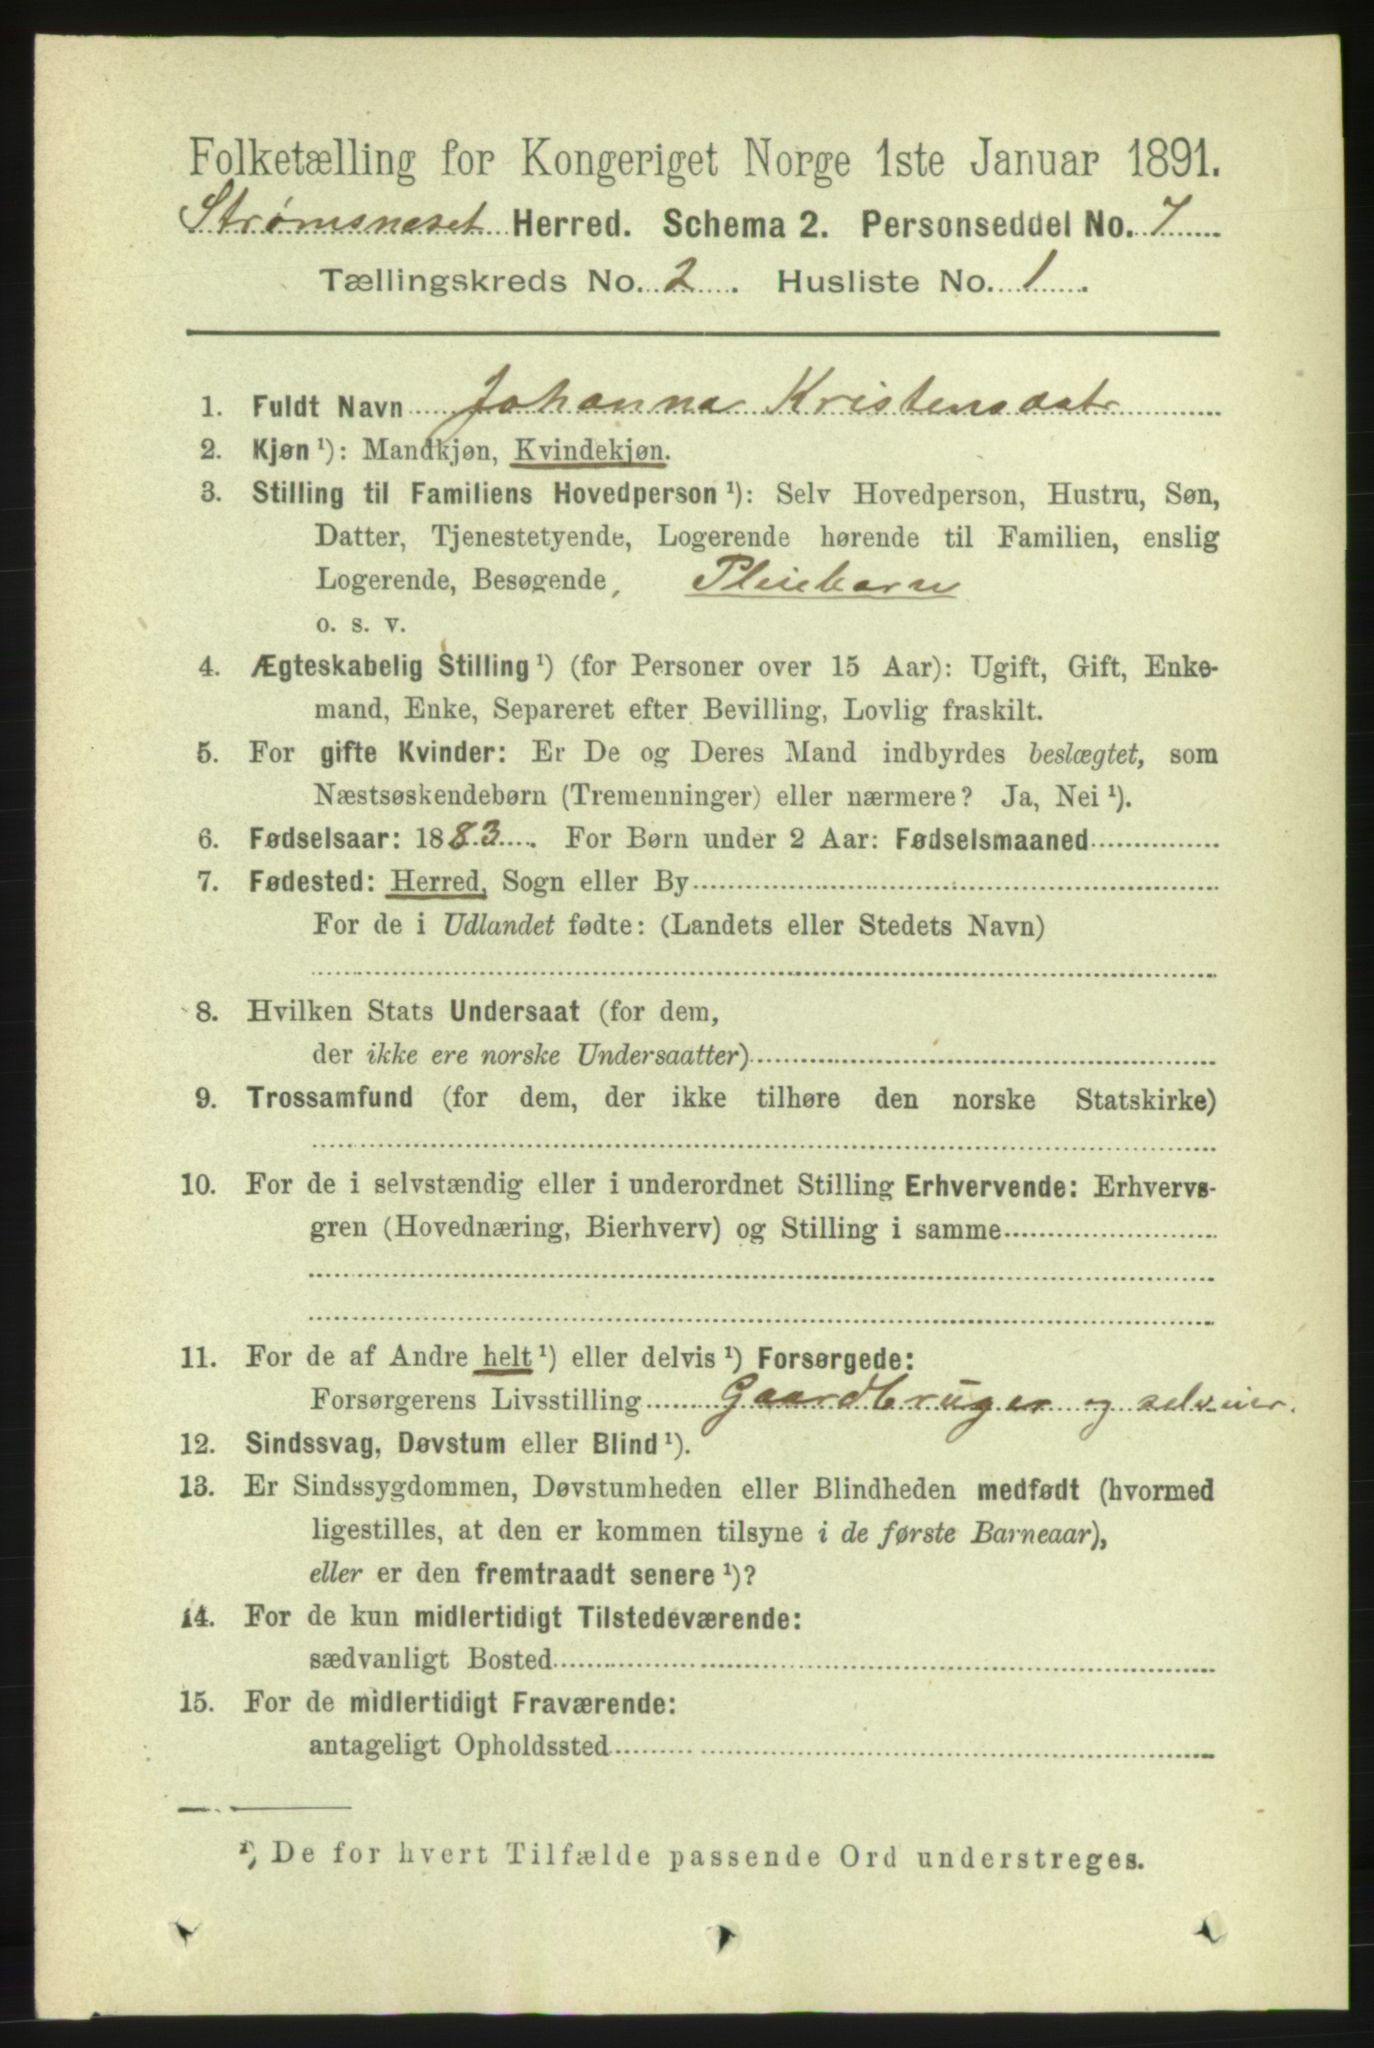 Folketælling for Kongeriget Norge 1ste Januar 1891.
Strømsneset Herred. Schema 2. Personseddel No. 7
Tællingskreds No. 2. Husliste No. 1.
1. Fuldt Navn Johanna Kristensdatr
2. Kjøn ¹): Mandkjøn, Kvindekjøn.
3. Stilling til Familiens Hovedperson ¹): Selv Hovedperson, Hustru, Søn,
Datter, Tjenestetyende, Logerende hørende til Familien, enslig
Logerende, Besøgende, Pleiebarn
o. s. v.
4. Ægteskabelig Stilling ¹) (for Personer over 15 Aar): Ugift, Gift, Enke-
mand, Enke, Separeret efter Bevilling, Lovlig fraskilt.
5. For gifte Kvinder: Er De og Deres Mand indbyrdes beslægtet, som
Næstsøskendebørn (Tremenninger) eller nærmere? Ja, Nei ¹).
6. Fødselsaar: 1883. For Børn under 2 Aar: Fødselsmaaned
7. Fødested: Herred, Sogn eller By
For de i Udlandet fødte: (Landets eller Stedets Navn)
8. Hvilken Stats Undersaat (for dem,
der ikke ere norske Undersaatter)
9. Trossamfund (for dem, der ikke tilhøre den norske Statskirke)
10. For de i selvstændig eller i underordnet Stilling Erhvervende: Erhvervs-
gren (Hovednæring, Bierhverv) og Stilling i samme
11. For de af Andre helt ¹) eller delvis ¹) Forsørgede:
Forsørgerens Livsstilling Gaardbruger og selveier.
12. Sindssvag, Døvstum eller Blind ¹).
13. Er Sindssygdommen, Døvstumheden eller Blindheden medfødt (hvormed
ligestilles, at den er kommen tilsyne i de første Barneaar),
eller er den fremtraadt senere ¹)?
14. For de kun midlertidigt Tilstedeværende:
sædvanligt Bosted
15. For de midlertidigt Fraværende:
antageligt Opholdssted
¹) De for hvert Tilfælde passende Ord understreges.